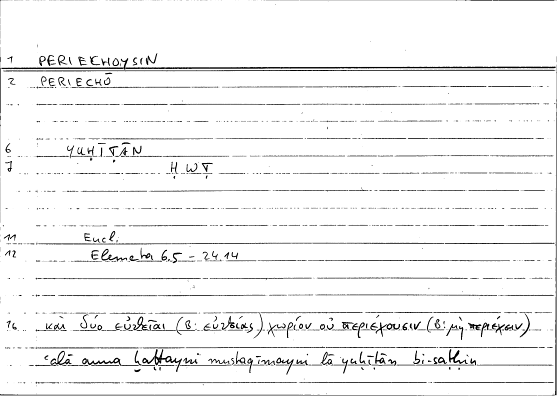 1 PERIECHOYSIN
2 PERIECHŌ
6 YUḤĪṬĀN
7 Ḥ W Ṭ
11 Eucl.
12 Elementa 6.5 - 24.14
16 καὶ δύο εὐθεῖαι (B: εὐθείας) χωρίον οὐ περιέχουσιν (B: μὴ περιέχειν)
ʿalā anna ḫaṭṭayni mustaqīmayni lā yuḥīṭān bi-saṭḥin